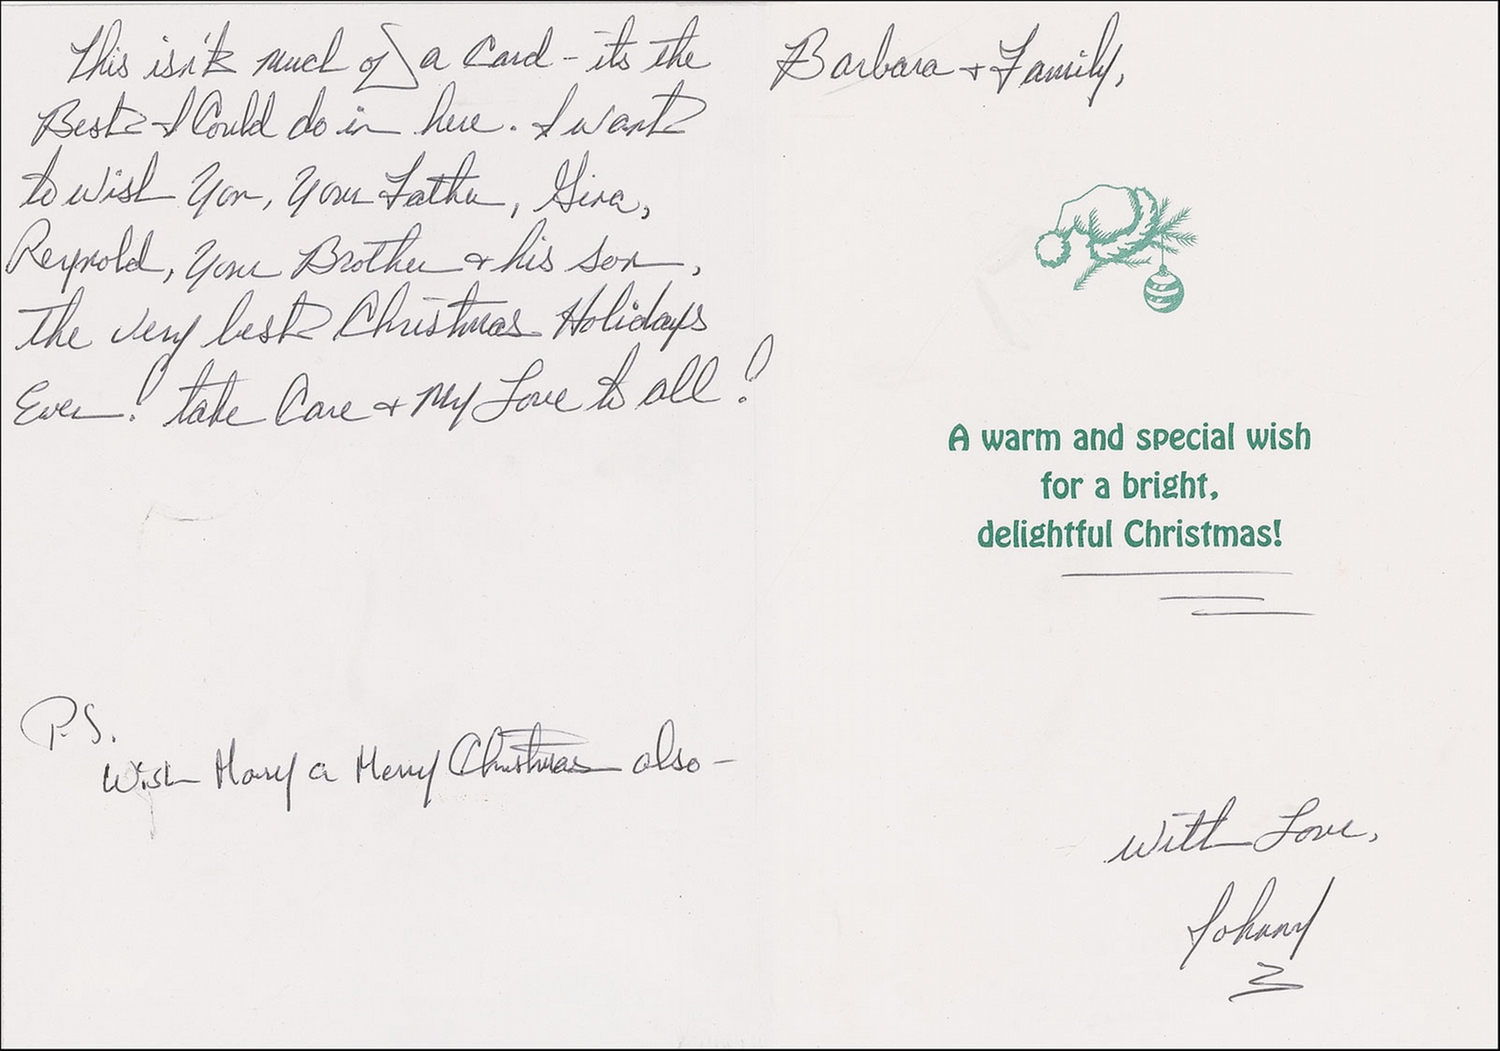 This isn't much of a Card - its the
Best I Could do in here. I want
to wish You, Your Father, Gina,
Reynold, Your Brother + his son,
the very best Christmas Holidays
Ever! take Care + My Love to all!
P.S.
Wish Mary a Merry Christmas also -
Barbara + Family,
A warm and special wish
for a bright,
delightful Christmas!
With Love,
Johnny